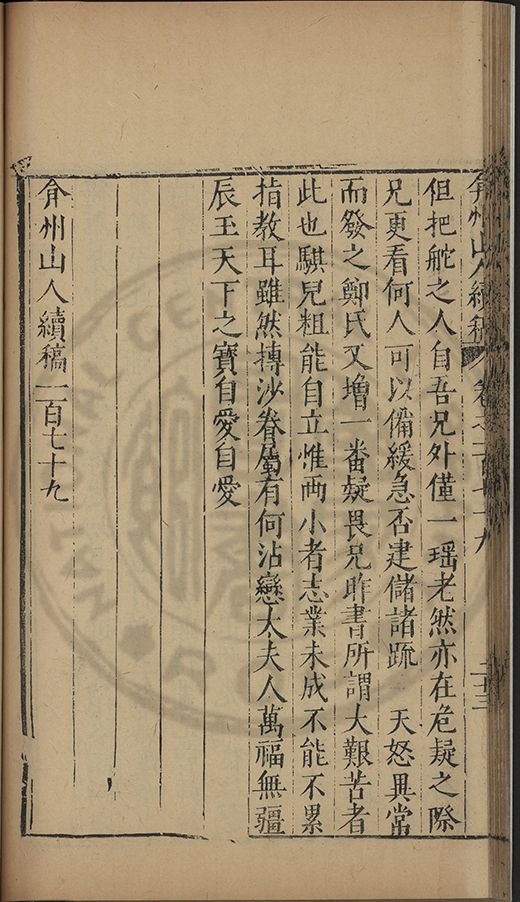 弇州山人續稿 卷之一百七十九 二十三
但把舵之人自吾兄外僅一瑶老然亦在危疑之際
兄更看何人可以備緩急否建儲諸疏 天怒異常
而發之鄭氏又增一番疑畏兄昨書所謂大艱苦者
此也騏兒粗能自立惟两小者志業未成不能不累
指教耳雖然摶沙眷屬有何沾戀太夫人萬福無疆
辰玉天下之寶自愛自愛
弇州山人續稿一百七十九